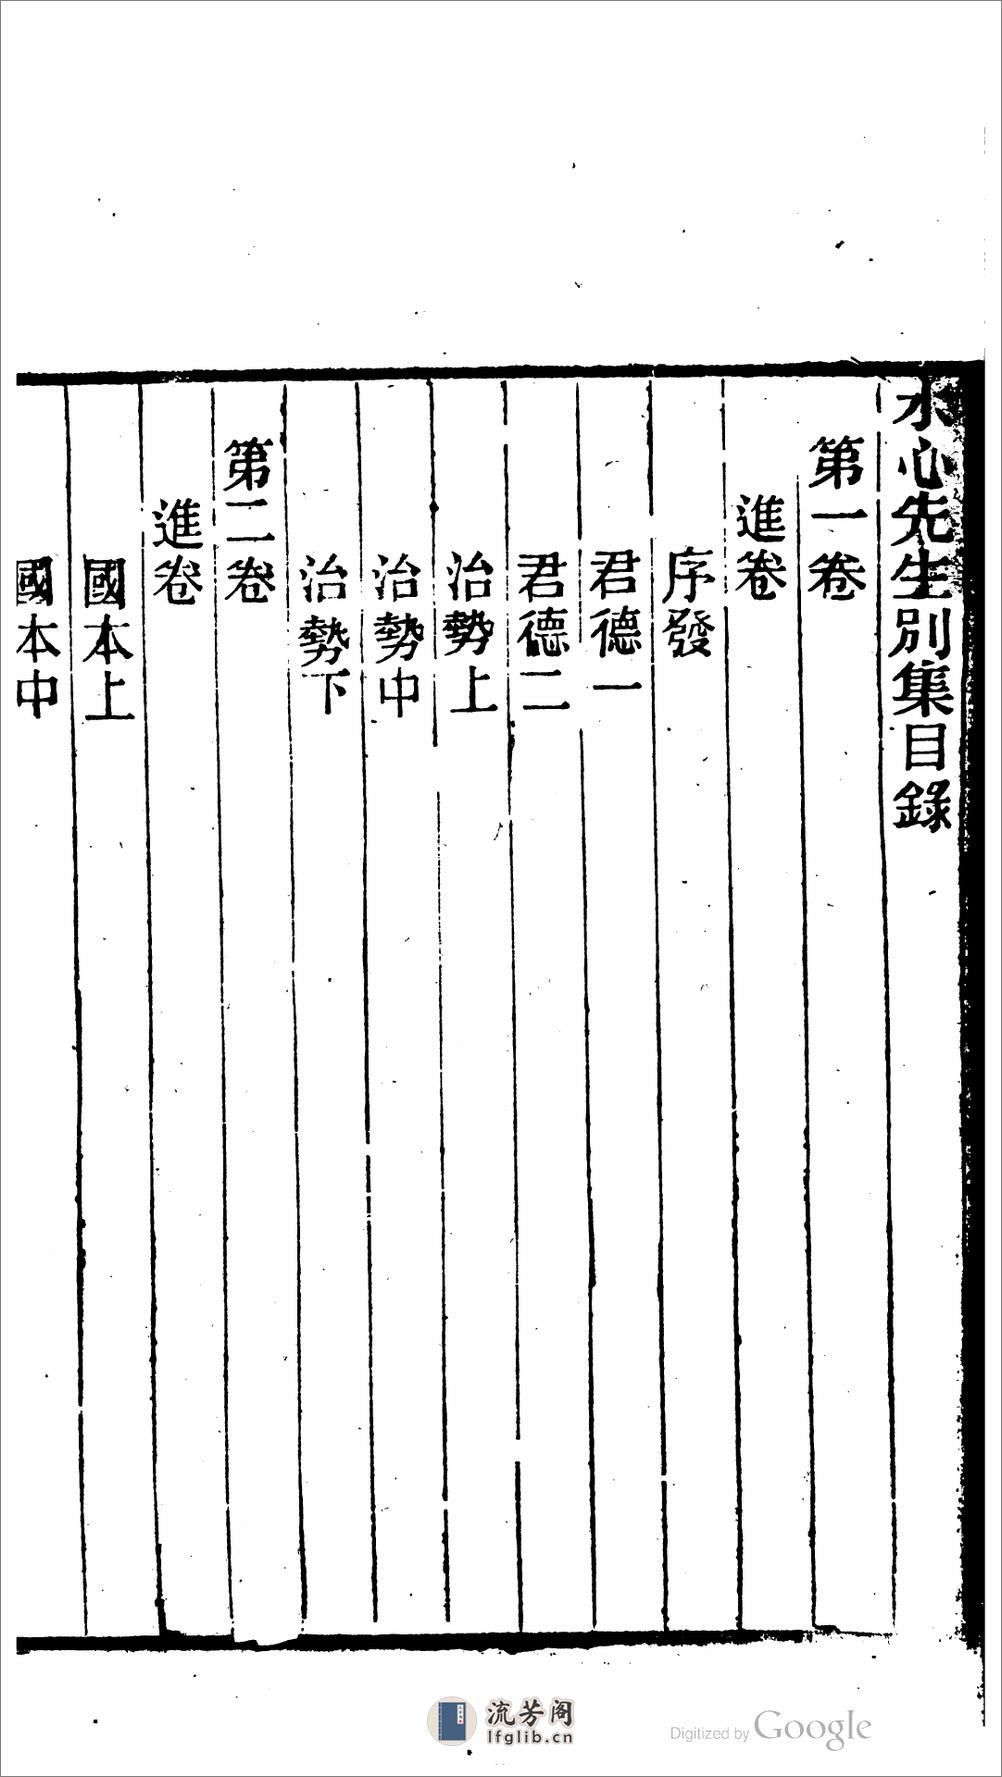 水心先生別集目錄
第一卷
進卷
序發
君德一
君德二
治勢上
治勢中
治勢下
第二卷
進卷
國本上
國本中
流芳阁
lfglib.cn
Digitized by Google